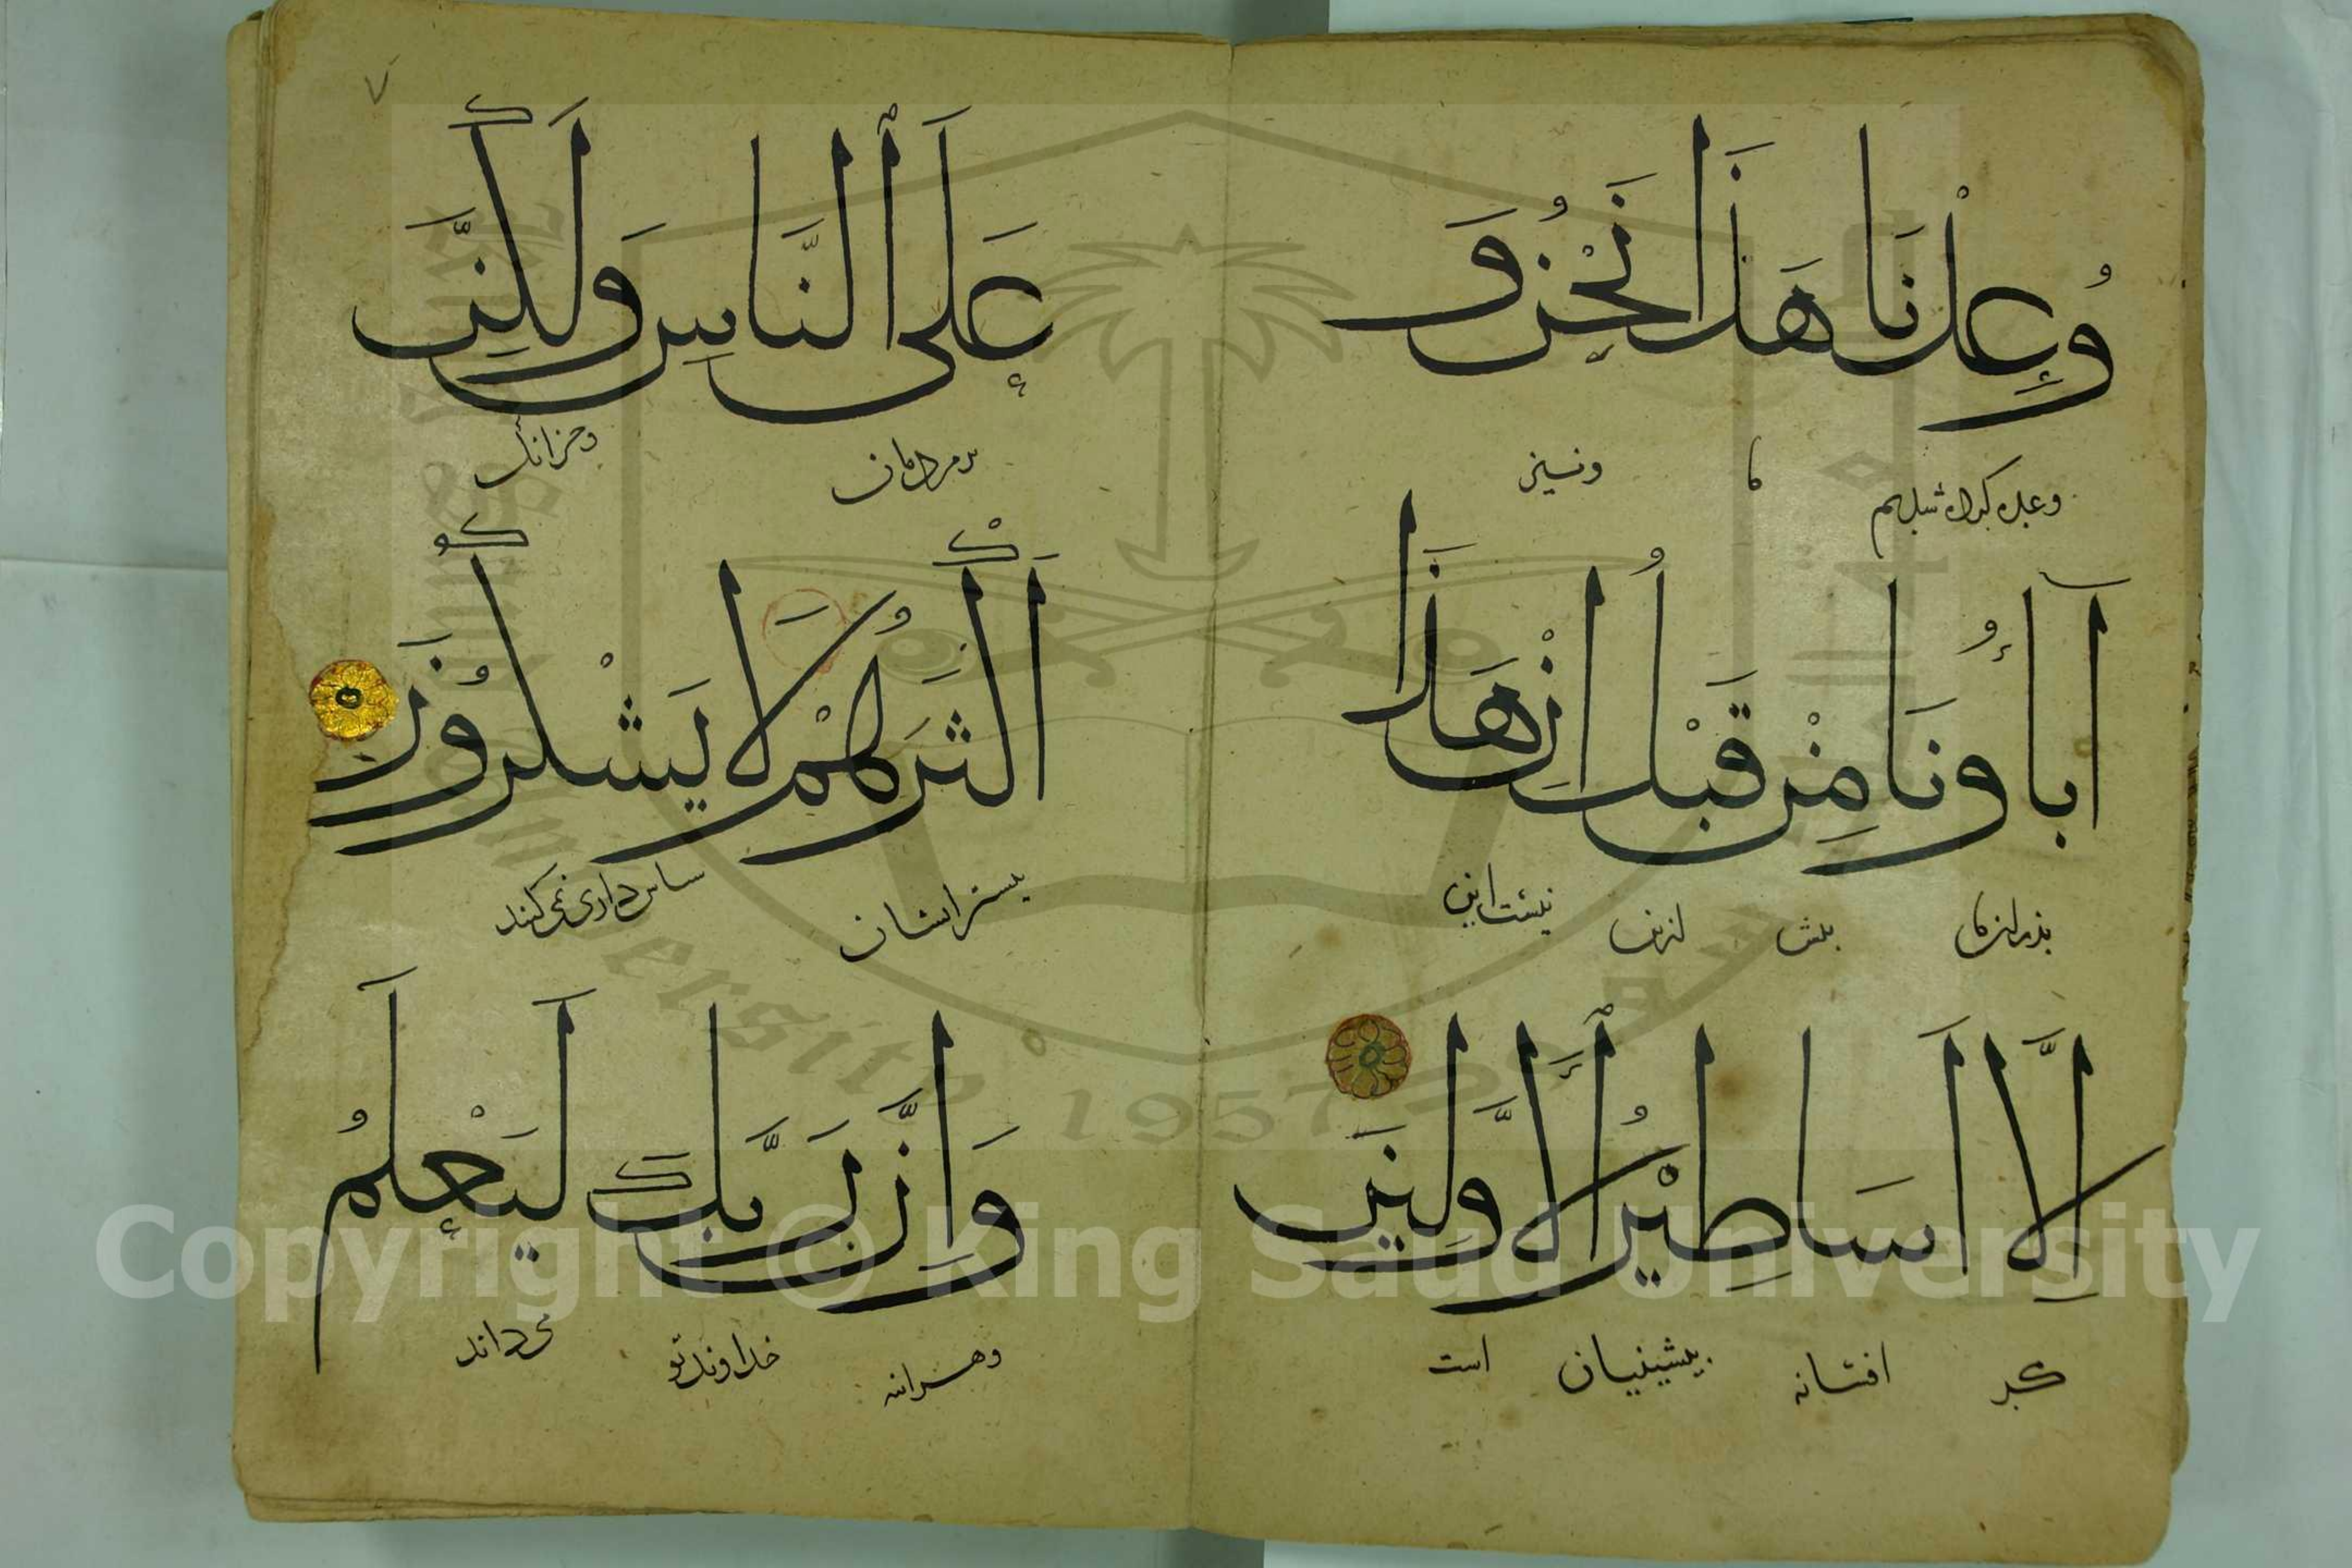 وُعِدْنَا هَذَا نَحْنُ وَ
وعده کرده شدیم ما ونیز
آبَاؤُنَا مِنْ قَبْلُ اِنْ هَذَا
پدران ما پیش ازین نیست این
اِلَّا اَسَاطِيْرُ الْاَوَّلِيْنَ
مکر افسانه پیشینیان است
٧
عَلَى النَّاسِ وَلَكِنَّ
بر مردمان
اَكْثَرَهُمْ لَا يَشْكُرُوْنَ
بیشتر ایشان سپاس داری نمی کنند
وَاِنَّ رَبَّكَ لَيَعْلَمُ
خداوند تو می داند
Copyright © King Saud University
University 1957